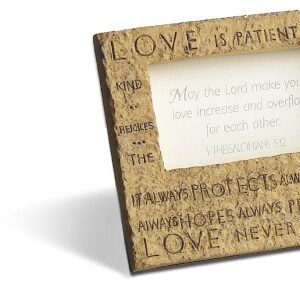 LOVE IS PATIENT
KIND
REJOICES
THE
May the Lord make you
love increase and overflo
for each other.
1 THESSALONIANS 3:12
IT ALWAYS PROTECTS ALWA
ALWAYS HOPES ALWAYS P
LOVE NEVER